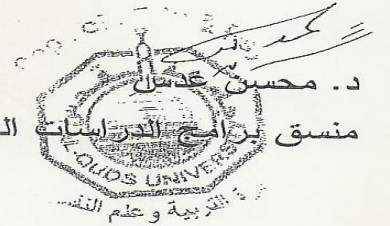 د. محسن عدس
منسق برامج الدراسات ال
QUDS UNIVERS
التربية وعلم النفس